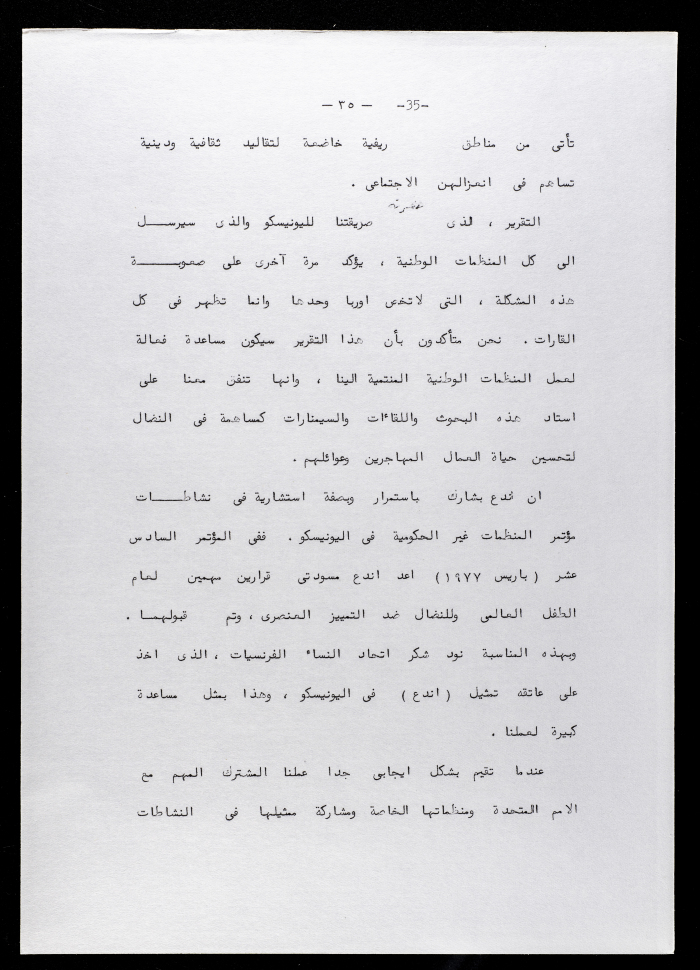 -35-   — ٣٥ —
تأتى من مناطق ريفية خاضعة لتقاليد ثقافية ودينية
تساهم فى انعزالهن الاجتماعى .
التقرير ، الذى حضرته صريقتنا لليونيسكو والذى سيرسل
الى كل المنظمات الوطنية ، يؤكد مرة آخرى على صعوبة
هذه المشكلة ، التى لاتخص اوربا وحدها وانما تظهر فى كل
القارات . نحن متأكدون بأن هذا التقرير سيكون مساعدة فعالة
لعمل المنظمات الوطنية المنتمية الينا ، وانها تنفق معنا على
استاد هذه البحوث واللقاءات والسيمنارات كمساهمة فى النضال
لتحسين حياة العمال المهاجرين وعوائلهم .
ان ئدع بشارك باستمرار وبصفة استشارية فى نشاطات
مؤتمر المنظمات غير الحكومية فى اليونيسكو . ففى المؤتمر السادس
عشر ( باريس ١٩٧٧ ) اعد اندع مسودتى قرارين مهمين لعام
الطفل العالمى وللنضال ضد التمييز العنصرى ، وتم قبولهما .
وبهذه المناسبة نود شكر اتحاد النساء الفرنسيات ، الذى اخذ
على عاتقه تمثيل ( اندع ) فى اليونيسكو ، وهذا يمثل مساعدة
كبيرة لعملنا .
عندما تقيم بشكل ايجابى جدا عملنا المشترك المهم مع
الامم المتحدة ومنظماتها الخاصة ومشاركة ممثيلها فى النشاطات